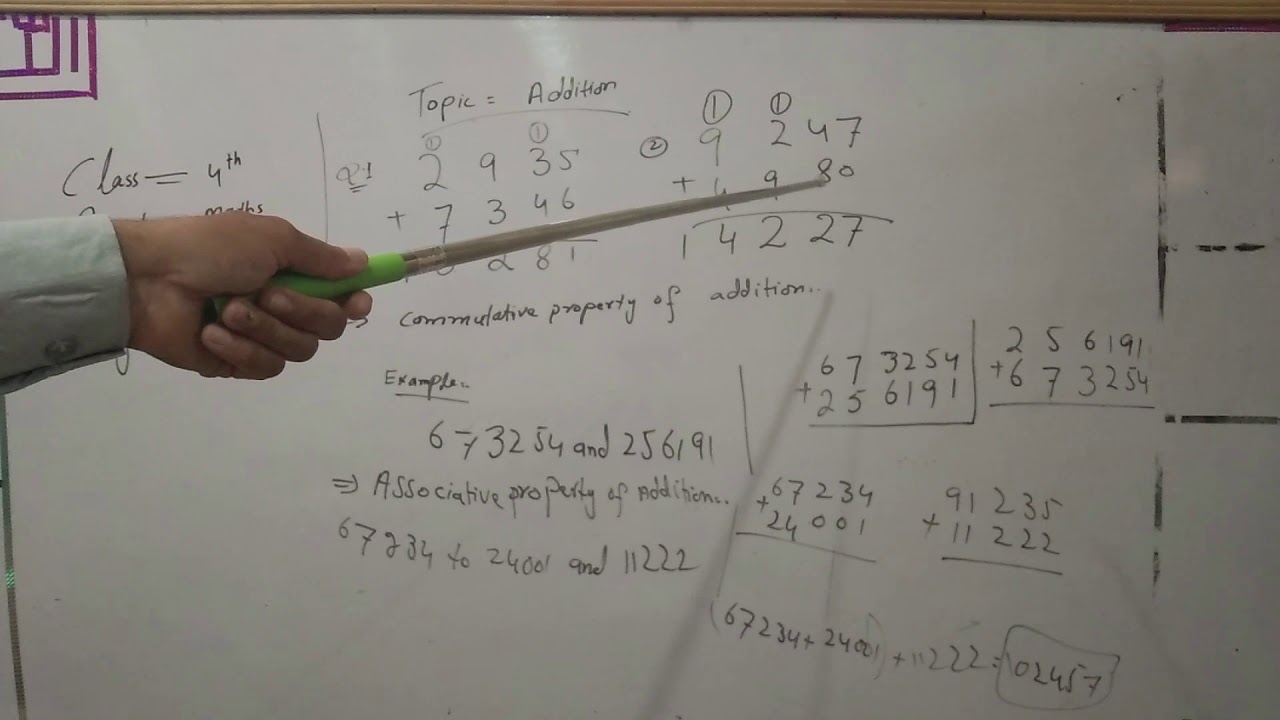 Topic = Addition
Class = 4th
maths
Q.1
① ①
2 9 3 5
+ 7 3 4 6
2 8 1
②
① ①
9 2 4 7
+ 4 9 8 0
1 4 2 2 7
⇒ Commulative property of addition..
Example:-
673254 and 256191
673254
+256191
256191
+673254
⇒ Associative property of Addition..
67234 to 24001 and 11222
67234
+24001
91235
+11222
(67234+24001)+11222=102457